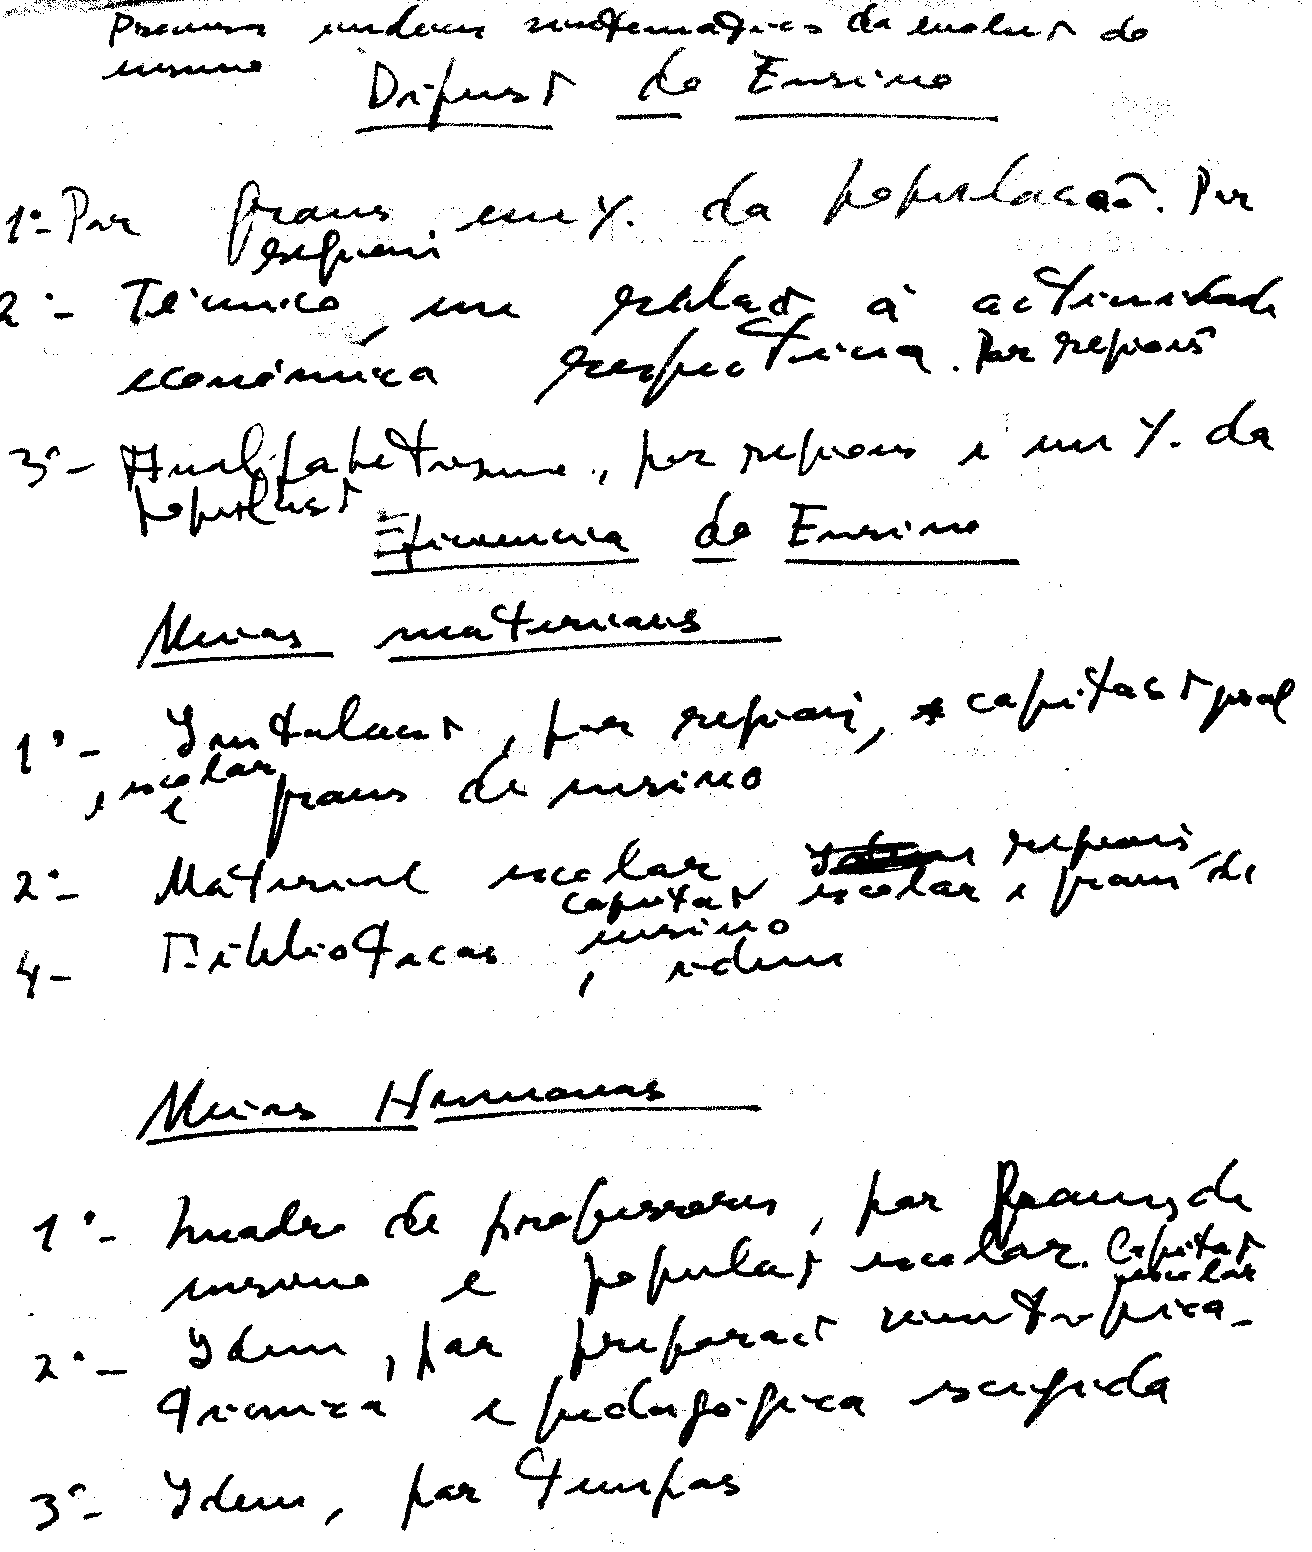 Procurar índices matemáticos da evolução do
ensino
Difusão do Ensino
1º- Por graus em % da população. Por
regiões
2º- Técnico, em relação à actividade
económica respectiva. Por regiões
3º- Analfabetismo, por regiões e em % da
população
Eficiencia do Ensino
Meios materiais
1º- Instalação, por regiões, capitação geral
e escolar
e graus de ensino
2º- Material escolar, regiões,
capitação escolar e graus de
ensino
4- Bibliotecas, idem
Meios Humanos
1º- Quadro de professores, por graus de
ensino e população escolar. Capitação
escolar
2º- Idem, por preparação científica-
técnica e pedagógica exigida
3º- Idem, por tempos